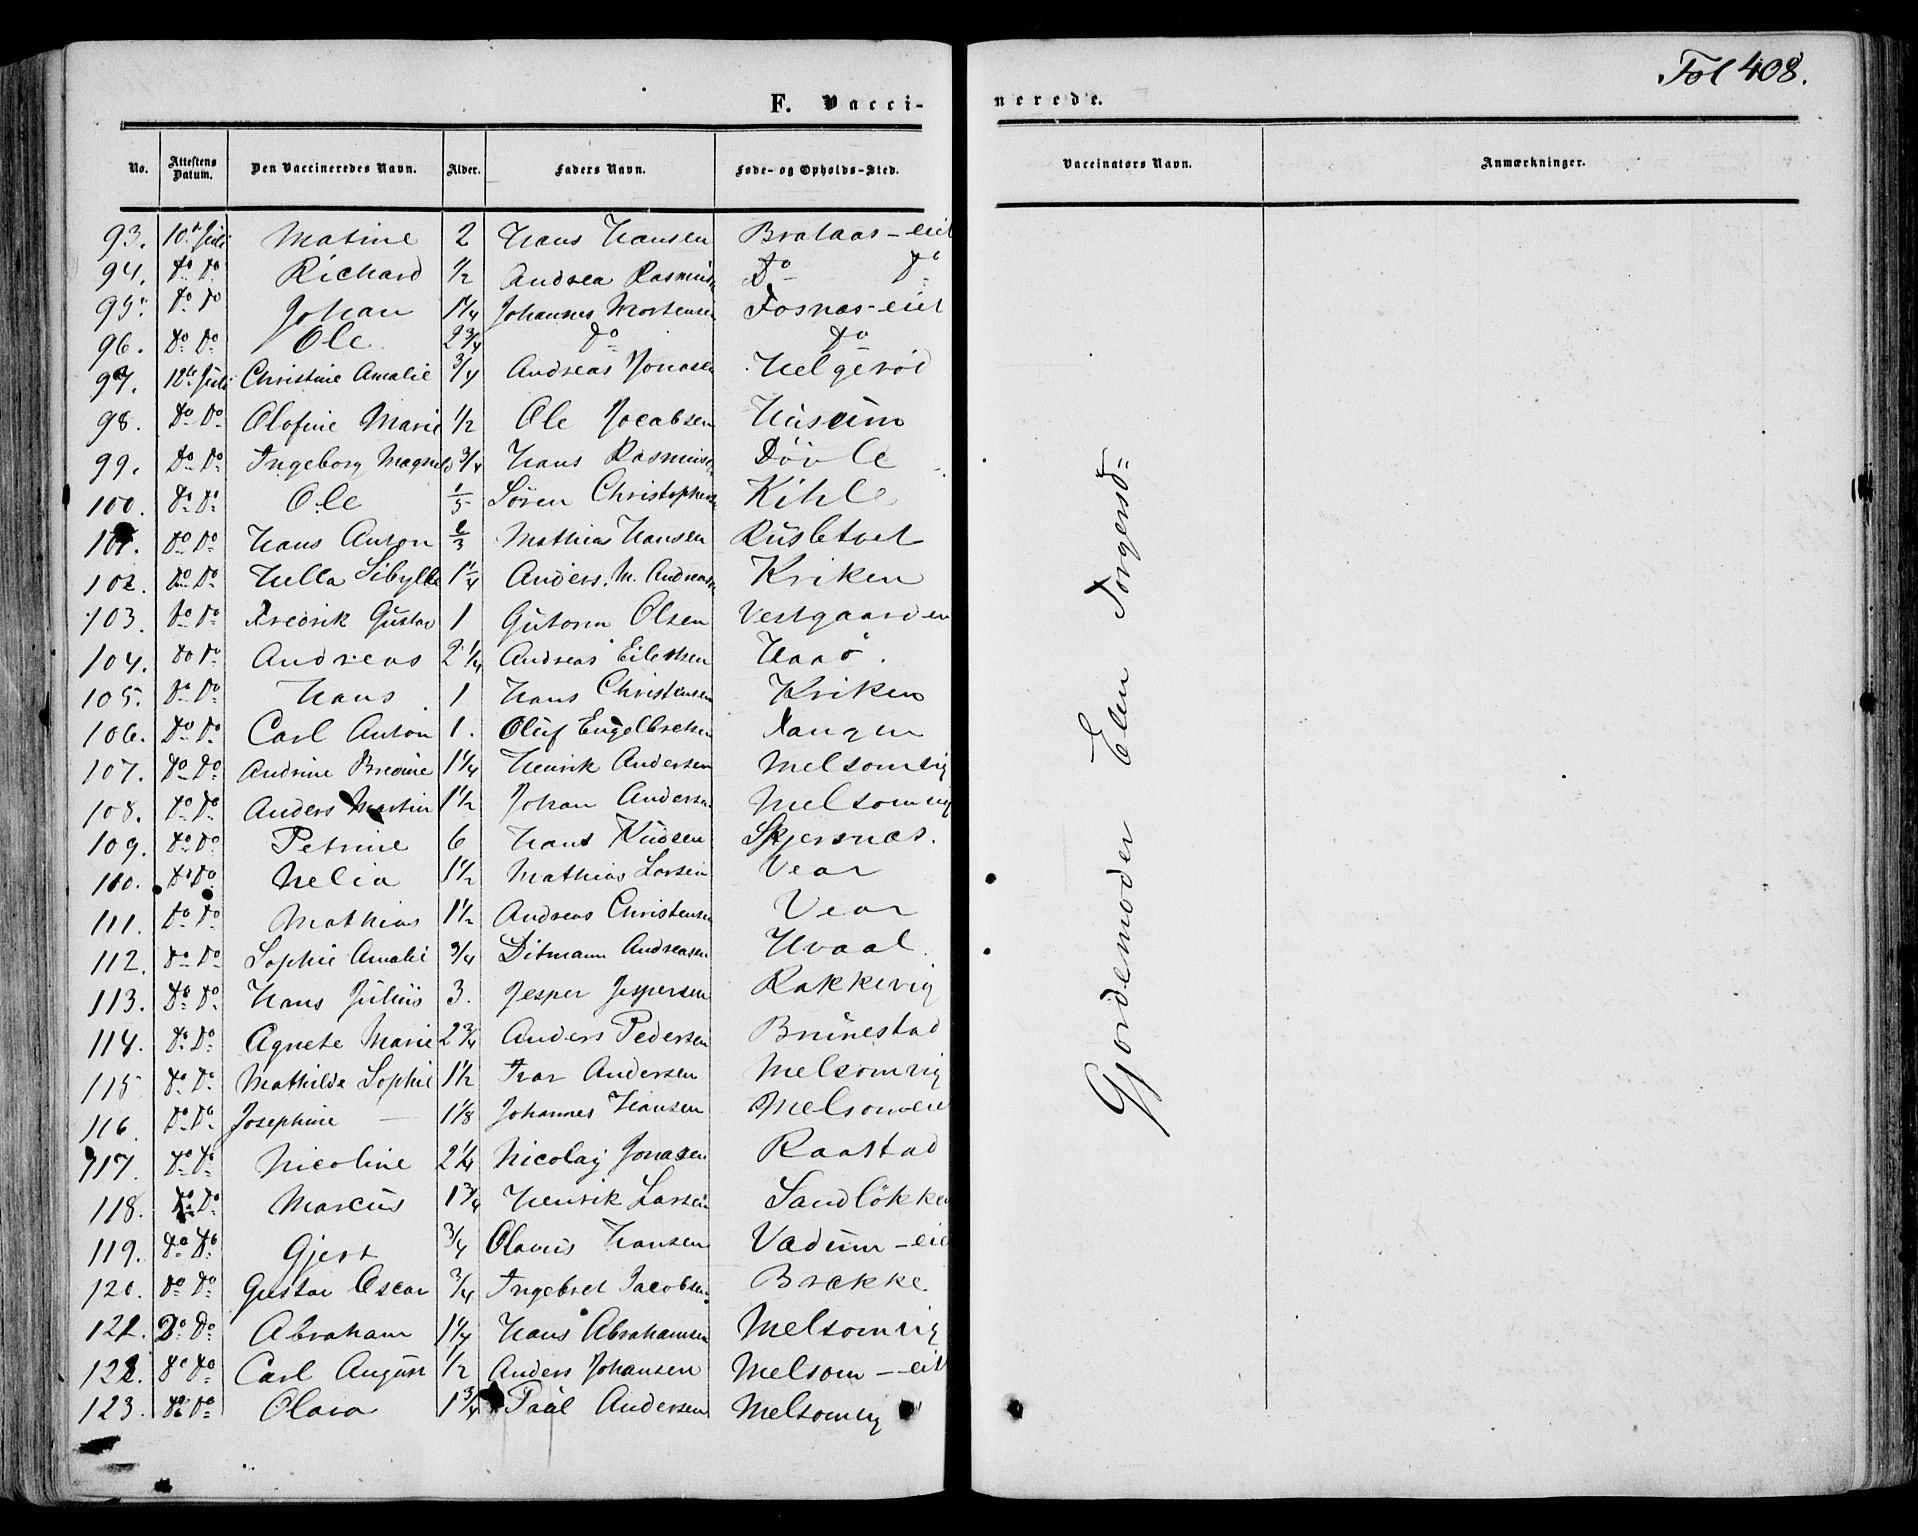 Fol 408.
F. Vacci-nerede.
No. Attestens Datum. Den Vaccineredes Navn. Alder. Faders Navn. Føde- og Opholds-Sted. Vaccinators Navn. Anmærkninger.
93. 10de Juli Matine 2 Hans Hansen Brataas-eiet
94. Do Do Richard 1/2 Andrea Rasmuss Do Do
95. Do Do Johan 1 1/4 Johannes Mortensen Fosnæs-eiet
96. Do Do Ole 2 3/4 Do Do
97. 12te Juli Christine Amalie 3/4 Andreas Jonasen Helgerød
98. Do Do Olofine Marie 1/2 Ole Jocabsen Husum
99. Do Do Ingeborg Magnild 3/4 Hans Rasmusen Døvle
100. Do Do Ole 1/5 Søren Christophers Kihle
101. Do Do Hans Anton 2/3 Mathias Hansen Rusletvet
102. Do Do Hella Sibylle 1 1/4 Anders. M. Andreasen Kriken
103. Do Do Fredrik Gustav 1 Gutorm Olsen Vestgaarden
104. Do Do Andreas 2 1/4 Andreas Eilertsen Haaø.
105. Do Do Hans 1 Hans Christensen Kriken
106. Do Do Carl Anton 1. Oluf Engelbretsen Tangen
107. Do Do Andrine Bredine 1 1/4 Henrik Andersen Melsomvig
108. Do Do Anders Martin 1 1/2 Johan Andersen Melsomvig
109. Do Do Petrine 6 Hans Knudsen Skjersnæs.
110. Do Do Nelia 1 1/2 Mathias Larsen Vear
111. Do Do Mathias 1 1/2 Andreas Christensen Vear
112. Do Do Sophie Amalie 3/4 Ditmann Andreasen Hvaal
113. Do Do Hans Julius 3. Jesper Jespersen Rakkevig
114. Do Do Agnete Marie 2 3/4 Anders Pedersen Brunestad
115 Do Do Mathilde Sophie 1 1/2 Ivar Andersen Melsomvig
116. Do Do Josephine — 1 1/8 Johannes Hansen Melsomeie
117. Do Do Nicoline 2 1/4 Nicolay Jonasen Raastad
118. Do Do Marcus 1 3/4 Henrik Larsen Sandløkken
119. Do Do Gjert 3/4 Olavus Hansen Vadum-eie
120. Do Do Gustav Oscar 3/4 Ingebret Jacobsen Brække
121. Do Do Abraham 1 1/4 Hans Abrahamsen Melsomvig
122. Do Do Carl August 1/2 Anders Johansen Melsom-eie
123. Do Do Olava 1 3/4 Paul Andersen Melsomvig
Gjordemoder Elen Torgersd=